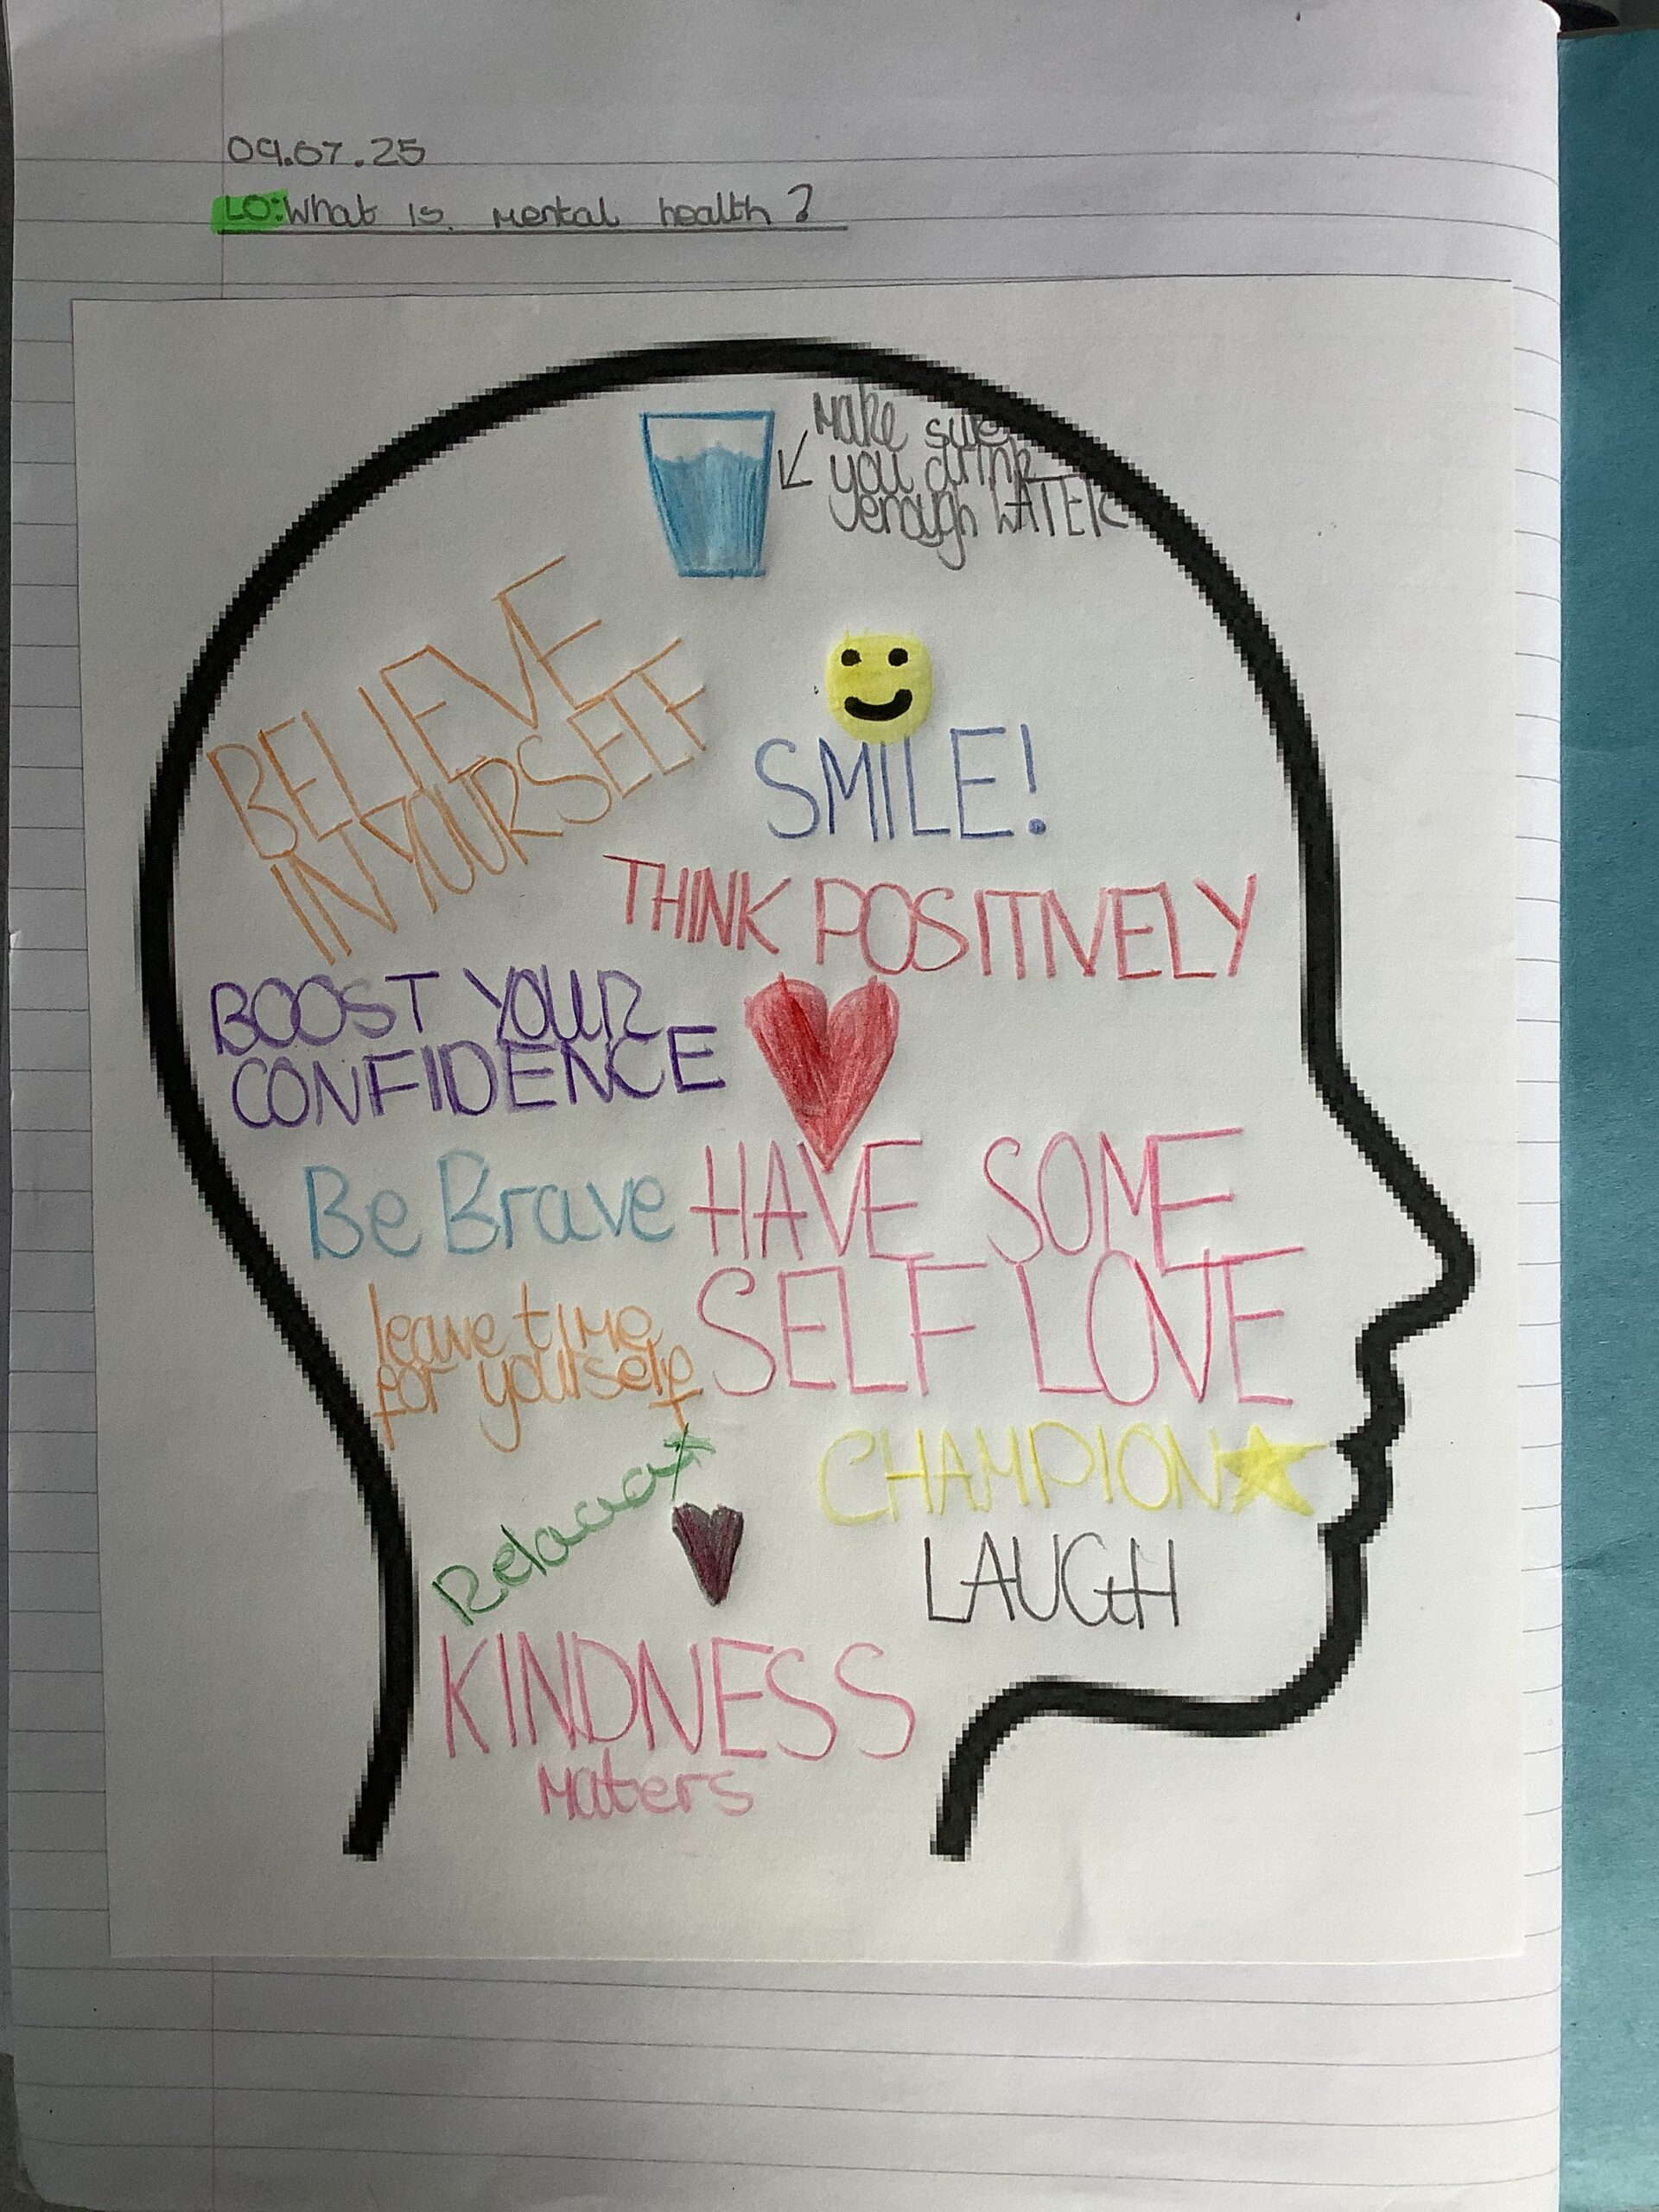 09.07.25
LO: What is mental health?
Make sure
you drink
enough WATER
BELIEVE
IN YOURSELF
SMILE!
THINK POSITIVELY
BOOST YOUR
CONFIDENCE
Be Brave
HAVE SOME
SELF LOVE
leave time
for yourself
CHAMPION
Relaaax
LAUGH
KINDNESS
Maters